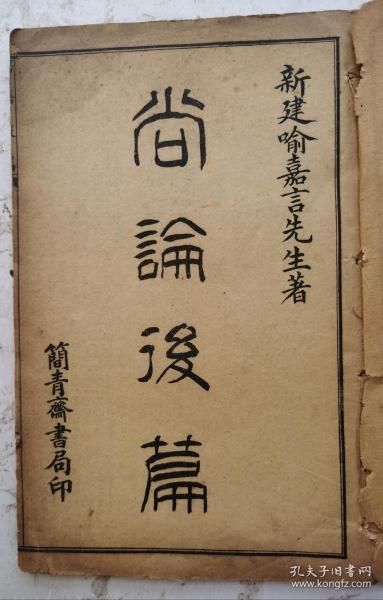 新建喻嘉言先生著
尚論後篇
簡青齋書局印
孔夫子旧书网